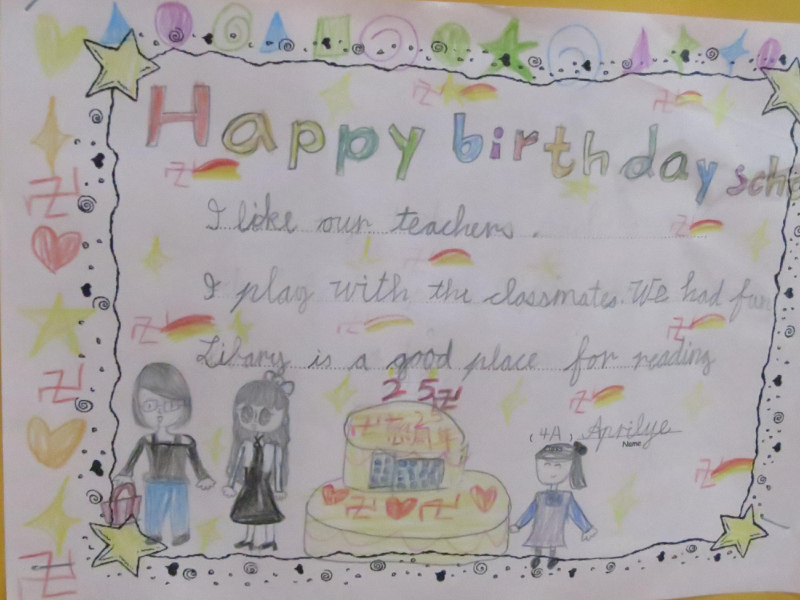 Happy birthday
I like our teachers.
I play with the classmates. We had fun
Libary is a good place for reading
25
(4A) Aprilye
Name